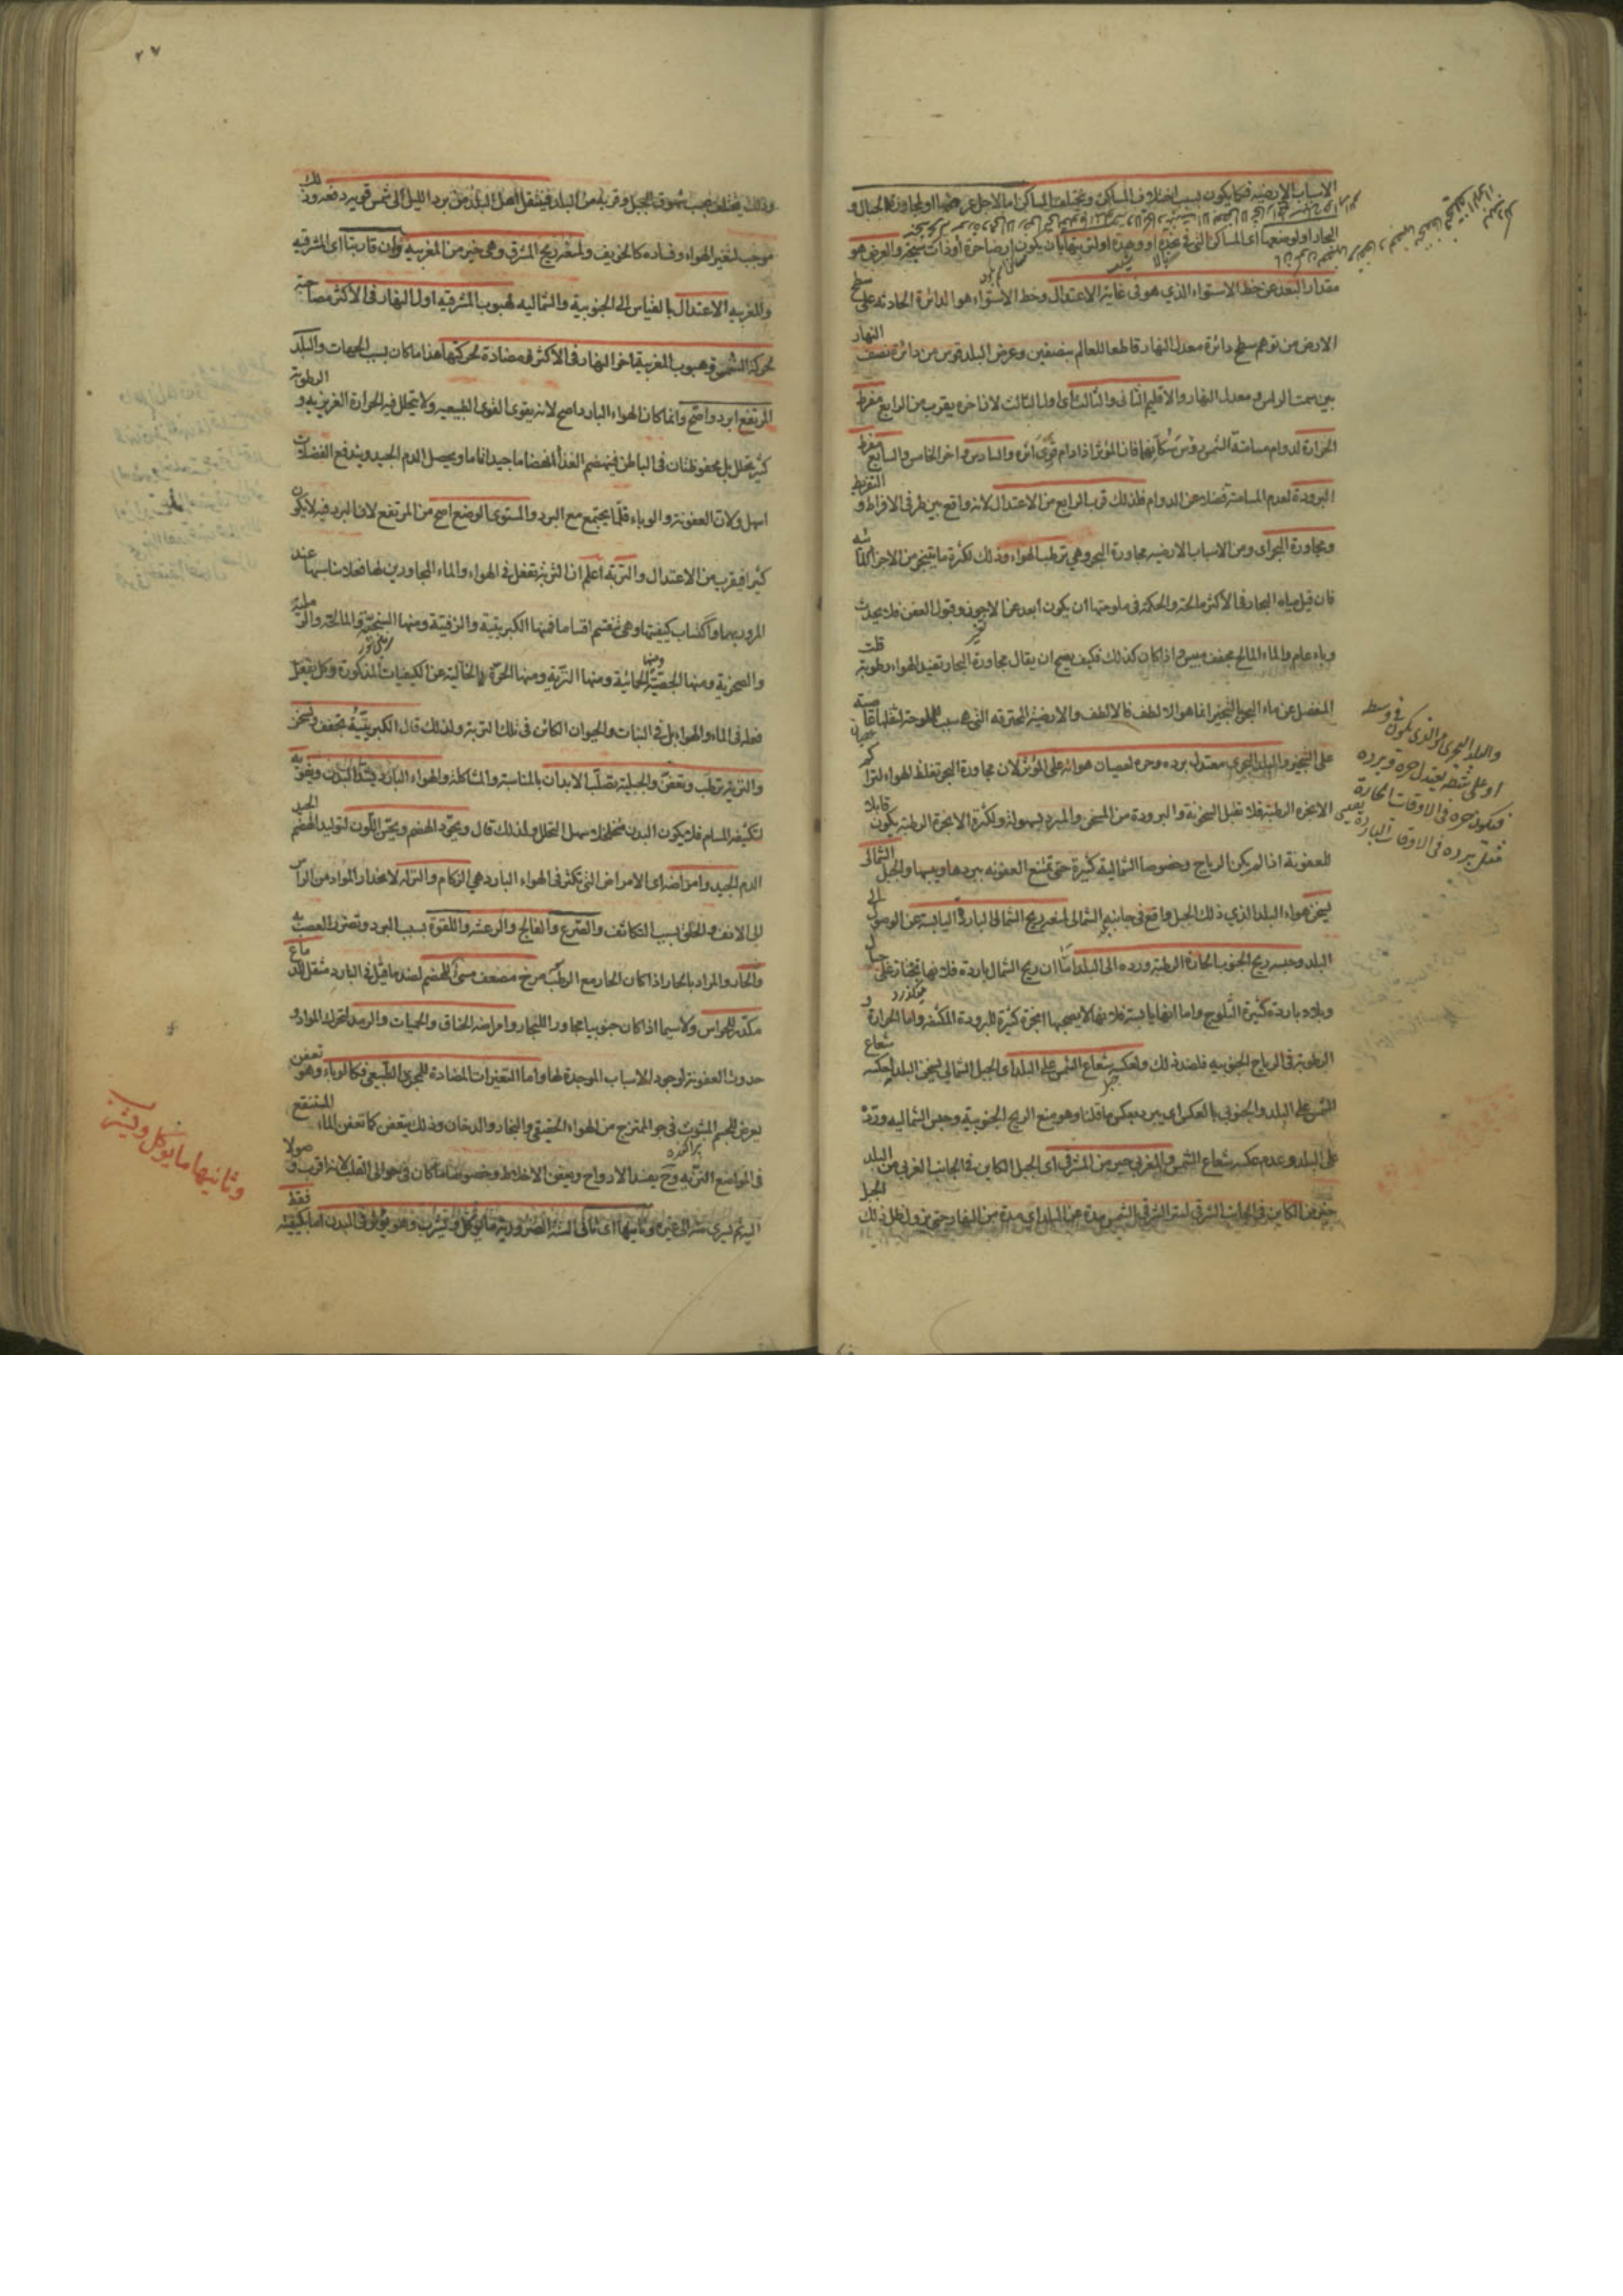 الاسباب الارضيه فكما يكون بسبب اختلاف المساكن ويختلف المساكن اما لاجل عرضها او لمجاورة الجبال و
البحار او لوضعها اى المساكن التى فى نجد او وهدة او لتربتها بان يكون ارضا حرة او ذات سبخ والعرض هو
مقدار البعد عن خط الاستواء الذي هو فى غاية الاعتدال وخط الاستواء هو الدائرة الحادثه على سطح
الارض من توهم سطح دائرة معدل النهار قاطعا للعالم بنصفين وعرض البلد قوس من دائرة نصف النهار
بين سمت الراس ومعدل النهار والاقليم الثانى والثالث اى اول الثالث لان اخره يقرب من الرابع مفرط
الحرارة لدوام مسامتة الشمس رؤس سكانها فان المؤثر اذا دام قوى اثره والسادس واخر الخامس والسابع مفرط
البرودة لعدم المسامتة فضلا عن الدوام فلذلك قرب الرابع من الاعتدال لانه واقع بين طرفى الافراط و التفريط
ومجاورة البحر اى ومن الاسباب الارضيه مجاورة البحر وهي ترطب الهواء وذلك لكثرة ما يتبخر من الاجزاء المائيه
فان قيل مياه البحار فى الاكثر مالحة والحكمة فى ملوحتها ان يكون ابعد عن الاجون وقبول العفن فلا يحدث
وباء عام والماء المالح مجفف ميبس واذا كان كذلك فكيف يصح ان يقال مجاورة البحار تفيد الهواء رطوبة قلت
المنفصل عن ماء البحر بالتبخير انما هو الالطف فالالطف والارضية المحترقه التى هى سبب للملوحة لثقلها عاصية
على التبخير والبلد البحرى معتدل برده وحره لعصيان هوائه على المؤثر لان مجاورة البحر تغلظ الهواء لتراكم
الابخره الرطبة فلا تقبل السخونة والبرودة من المسخن والمبرد بسهولة ولكثرة الابخرة الرطبة يكون قابلا
للعفونة اذا لم يكن الرياح وخصوصا الشمالية كثيرة حتى تمنع العفونه ببردها ويبسها والجبل الشمالى
يسخن هواء البلد الذي ذلك الجبل واقع فى جانبه الشمالى لمنعه ريح الشمالى الباردة اليابسة عن الوصول الى
البلد وحبسه ريح الجنوب الحارة الرطبة ورده الى البلد اما ان ريح الشمال باردة فلانها تجتاز على جبال
وبلاد باردة كثيرة الثلوج واما انها يابسة فلانها لا يصحبها ابخرة كثيرة للبرودة المكثفه واما الحرارة و
الرطوبة فى الرياح الجنوبيه فلضد ذلك ولعكسه شعاع الشمس على البلد اى الجبل الشمالي يسخن البلد لعكسه شعاع
الشمس على البلد والجنوبى بالعكس اى يبرد بعكس ما قلنا وهو منع الريح الجنوبية وحبس الشماليه ورده
على البلد وعدم عكسه شعاع الشمس والمغربي خير من المشرقى اى الجبل الكاين فى الجانب الغربى من البلد
خير من الكاين فى الجانب الشرقى لستر الشرقى الشمس مدة عن البلد اى مدة من النهار حتى يزول ظل ذلك الجبل
والبلد البحرى هو الذى يكون فى وسط
او على شطه يعتدل حره وبرده
فيكون حره فى الاوقات الحارة
برده فى الاوقات الباردة
٢٧
وذلك يختلف بحسب شهوق الجبل وقربه من البلد فينتقل اهل البلد من برد الليل الى شمس قويه دفعه وذلك
موجب لتغير الهواء وفساده كالخريف ولستره ريح المشرق وهى خير من المغربيه وان قاربتا اى المشرقيه
والمغربيه الاعتدال بالقياس الى الجنوبية والشماليه لهبوب المشرقيه اول النهار فى الاكثر مصاحبة
لحركة الشمس وهبوب المغربية اخر النهار فى الاكثر مضادة لحركتها هذا ما كان بسبب الجهات والبلد
المرتفع ابرد واصح وانما كان الهواء البارد اصح لانه يقوى القوى الطبيعيه ولا يتحلل فيه الحرارة الغريزيه و الرطوبة
كثير تحلل بل يحفوظتان فى الباطن فينهضم الغذاء انهضاما جيدا تاما ويحصل الدم الجيد ويندفع الفضلات
اسهل ولان العفونة والوباء قلما يجتمع مع البرد والمستوى الوضع اصح من المرتفع لان البرد فيه لا يكون
كثيرا فيقرب من الاعتدال والتربة اعلم ان التربة تفعل فى الهواء والماء المجاورين لها فعلا مناسبا عند
المرور بهما واكتساب كيفيتها وهى تنقسم اقساما فمنها الكبريتية والزفتية ومنها السبخية والمالحة والرملية
والصخرية ومنها الجصية ومنها الحمائية ومنها النزية ومنها الحرة اى الخالية عن الكيفيات المذكورة وكل يفعل
فعله فى الماء والهواء بل فى النبات والحيوان الكائن فى تلك التربة ولذلك قال الكبريتية تجفف وتسخن
والنزية ترطب وتعفن والجبلية تصلب الابدان بالمناسبة والمشاكلة والهواء البارد يشد البدن ويقويه
لتكثيفه المسام فلا يكون البدن متخلخلا سهل التحلل ولذلك قال ويجود الهضم ويحسن اللون لتوليد الهضم الجيد
الدم الجيد وامراضه اى الامراض التى تكثر فى الهواء البارد هي الزكام والنزلة لانحدار المواد من الراس
الى الانف والحلق بسبب التكاثف والصرع والفالج والرعشه واللقوة بسبب البرد وتضرر العصب به
والحار والمراد بالحار اذا كان الحار مع الرطب مرخ مضعف مسئ للهضم لضد ما قيل فى البارد مثقل للدماغ
مكدر للحواس ولاسيما اذا كان جنوبيا مجاورا للبحار وامراضه الخناق والحميات والرمد لتحرك المواد و
حدوث العفونة لوجود الاسباب الموجدة لها واما التغيرات المضادة للمجرى الطبيعى فكالوباء وهو تعفن
يعرض للجسم المبثوث فى جو الممتزج من الهواء الحقيقى والبخار والدخان وذلك يتعفن كما تعفن الماء المستنقع
فى المواضع النزيه وح يفسد الارواح ويعفن الاخلاط وخصوصا ما كان فى حوالى القلب لانه اقرب وصولا
اليه ثم يسرى منه الى غيره وثانيها اى ثانى الستة الضروريه ما يؤكل ويشرب وهو يؤثر فى البدن اما بكيفيته فقط
وثانيها ما يؤكل ويشرب